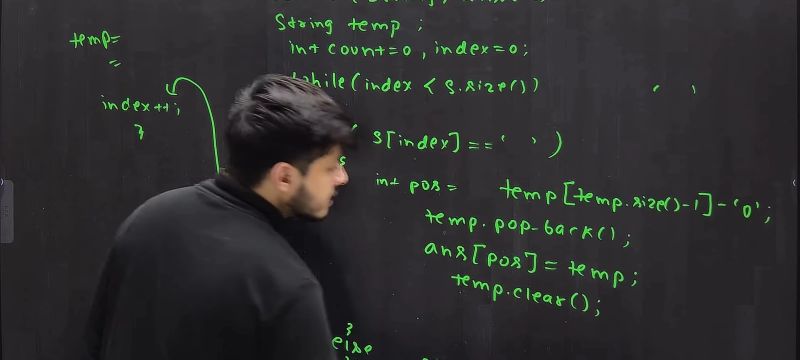 temp=
=
index++;
}
String temp ;
int count=0 , index=0;
while(index < s.size())
' '
s[index] == ' ' )
int pos = temp[temp.size()-1]-'0';
temp.pop-back();
ans[pos] = temp;
temp.clear();
}
else